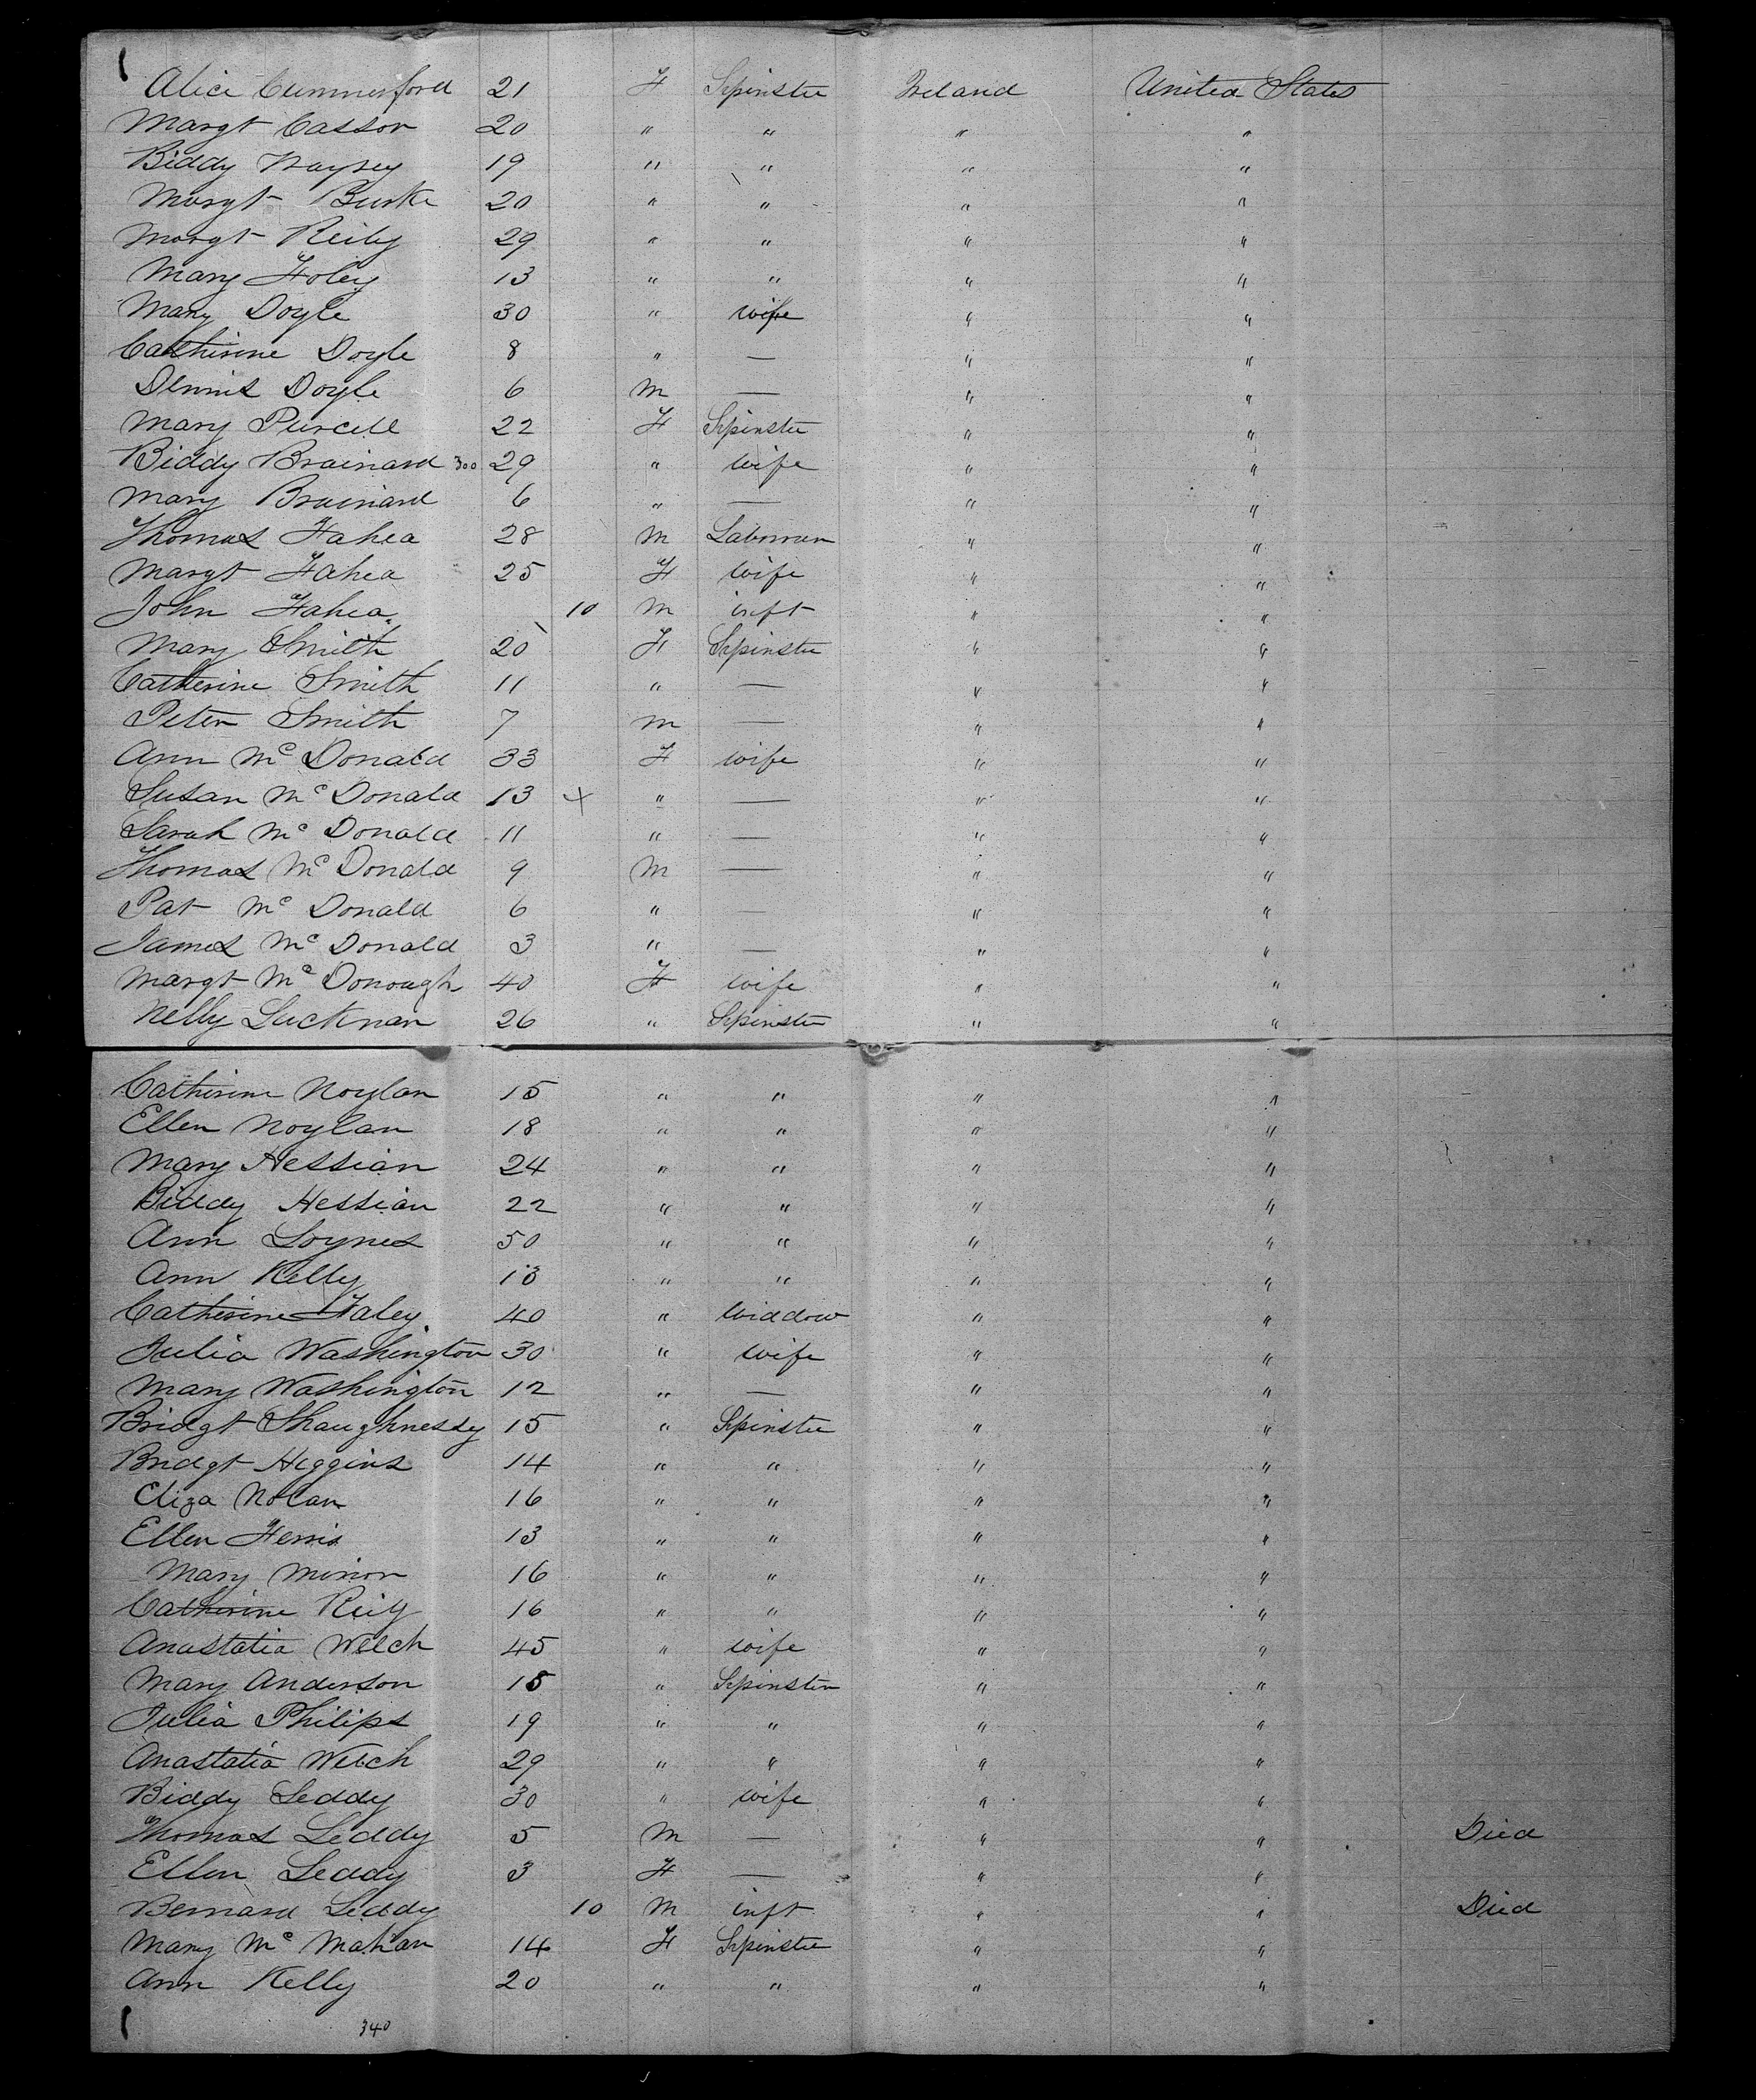 Alice Cummerford 21 F Spinster Ireland United States
Margt Casson 20 " " " "
Biddy 19 " " " "
Margt Burke 20 " " " "
Margt Reily 29 " " " "
Mary Foley 13 " " " "
Mary Doyle 30 " wife " "
Catherine Doyle 8 " — " "
Dennis Doyle 6 M — " "
Mary Purcell 22 F Spinster " "
Biddy Brainard 300 29 " wife " "
Mary Brainard 6 " — " "
Thomas Fahea 28 M " "
Margt Fahea 25 F wife " "
John Fahea 10 M inft " "
Mary Smith 20 F Spinster " "
Catherine Smith 11 " — " "
Peter Smith 7 M — " "
Ann McDonald 33 F wife " "
Susan McDonald 13 x " — " "
Sarah McDonald 11 " — " "
Thomas McDonald 9 M — " "
Pat McDonald 6 " — " "
James McDonald 3 " — " "
Margt McDonough 40 F wife " "
Nelly Lucknan 26 " Spinster " "
Catherine Noylan 15 " " " "
Ellen Noylan 18 " " " "
Mary Hessian 24 " " " "
Biddy Hessian 22 " " " "
Ann Loynes 50 " " " "
Ann Kelly " " " "
Catherine Faley 40 " widdow " "
Julia Washington 30 " wife " "
Mary Washington 12 " — " "
Bridgt Shaughnessy 15 " Spinster " "
Bridgt Higgins 14 " " " "
Eliza Nolan 16 " " " "
Ellen Ferris 13 " " " "
Mary Minion 16 " " " "
Catherine Reily 16 " " " "
Anastatia Welch 45 " wife " "
Mary Anderson 18 " Spinster " "
Julia Philips 19 " " " "
Anastatia Welch 29 " " " "
Biddy Leddy 30 " wife " "
Thomas Leddy 5 M — " " Died
Ellen Leddy 3 F — " "
Bernard Leddy 10 M inft " " Died
Mary McMahan 14 F Spinster " "
Ann Kelly 20 " " " "
340